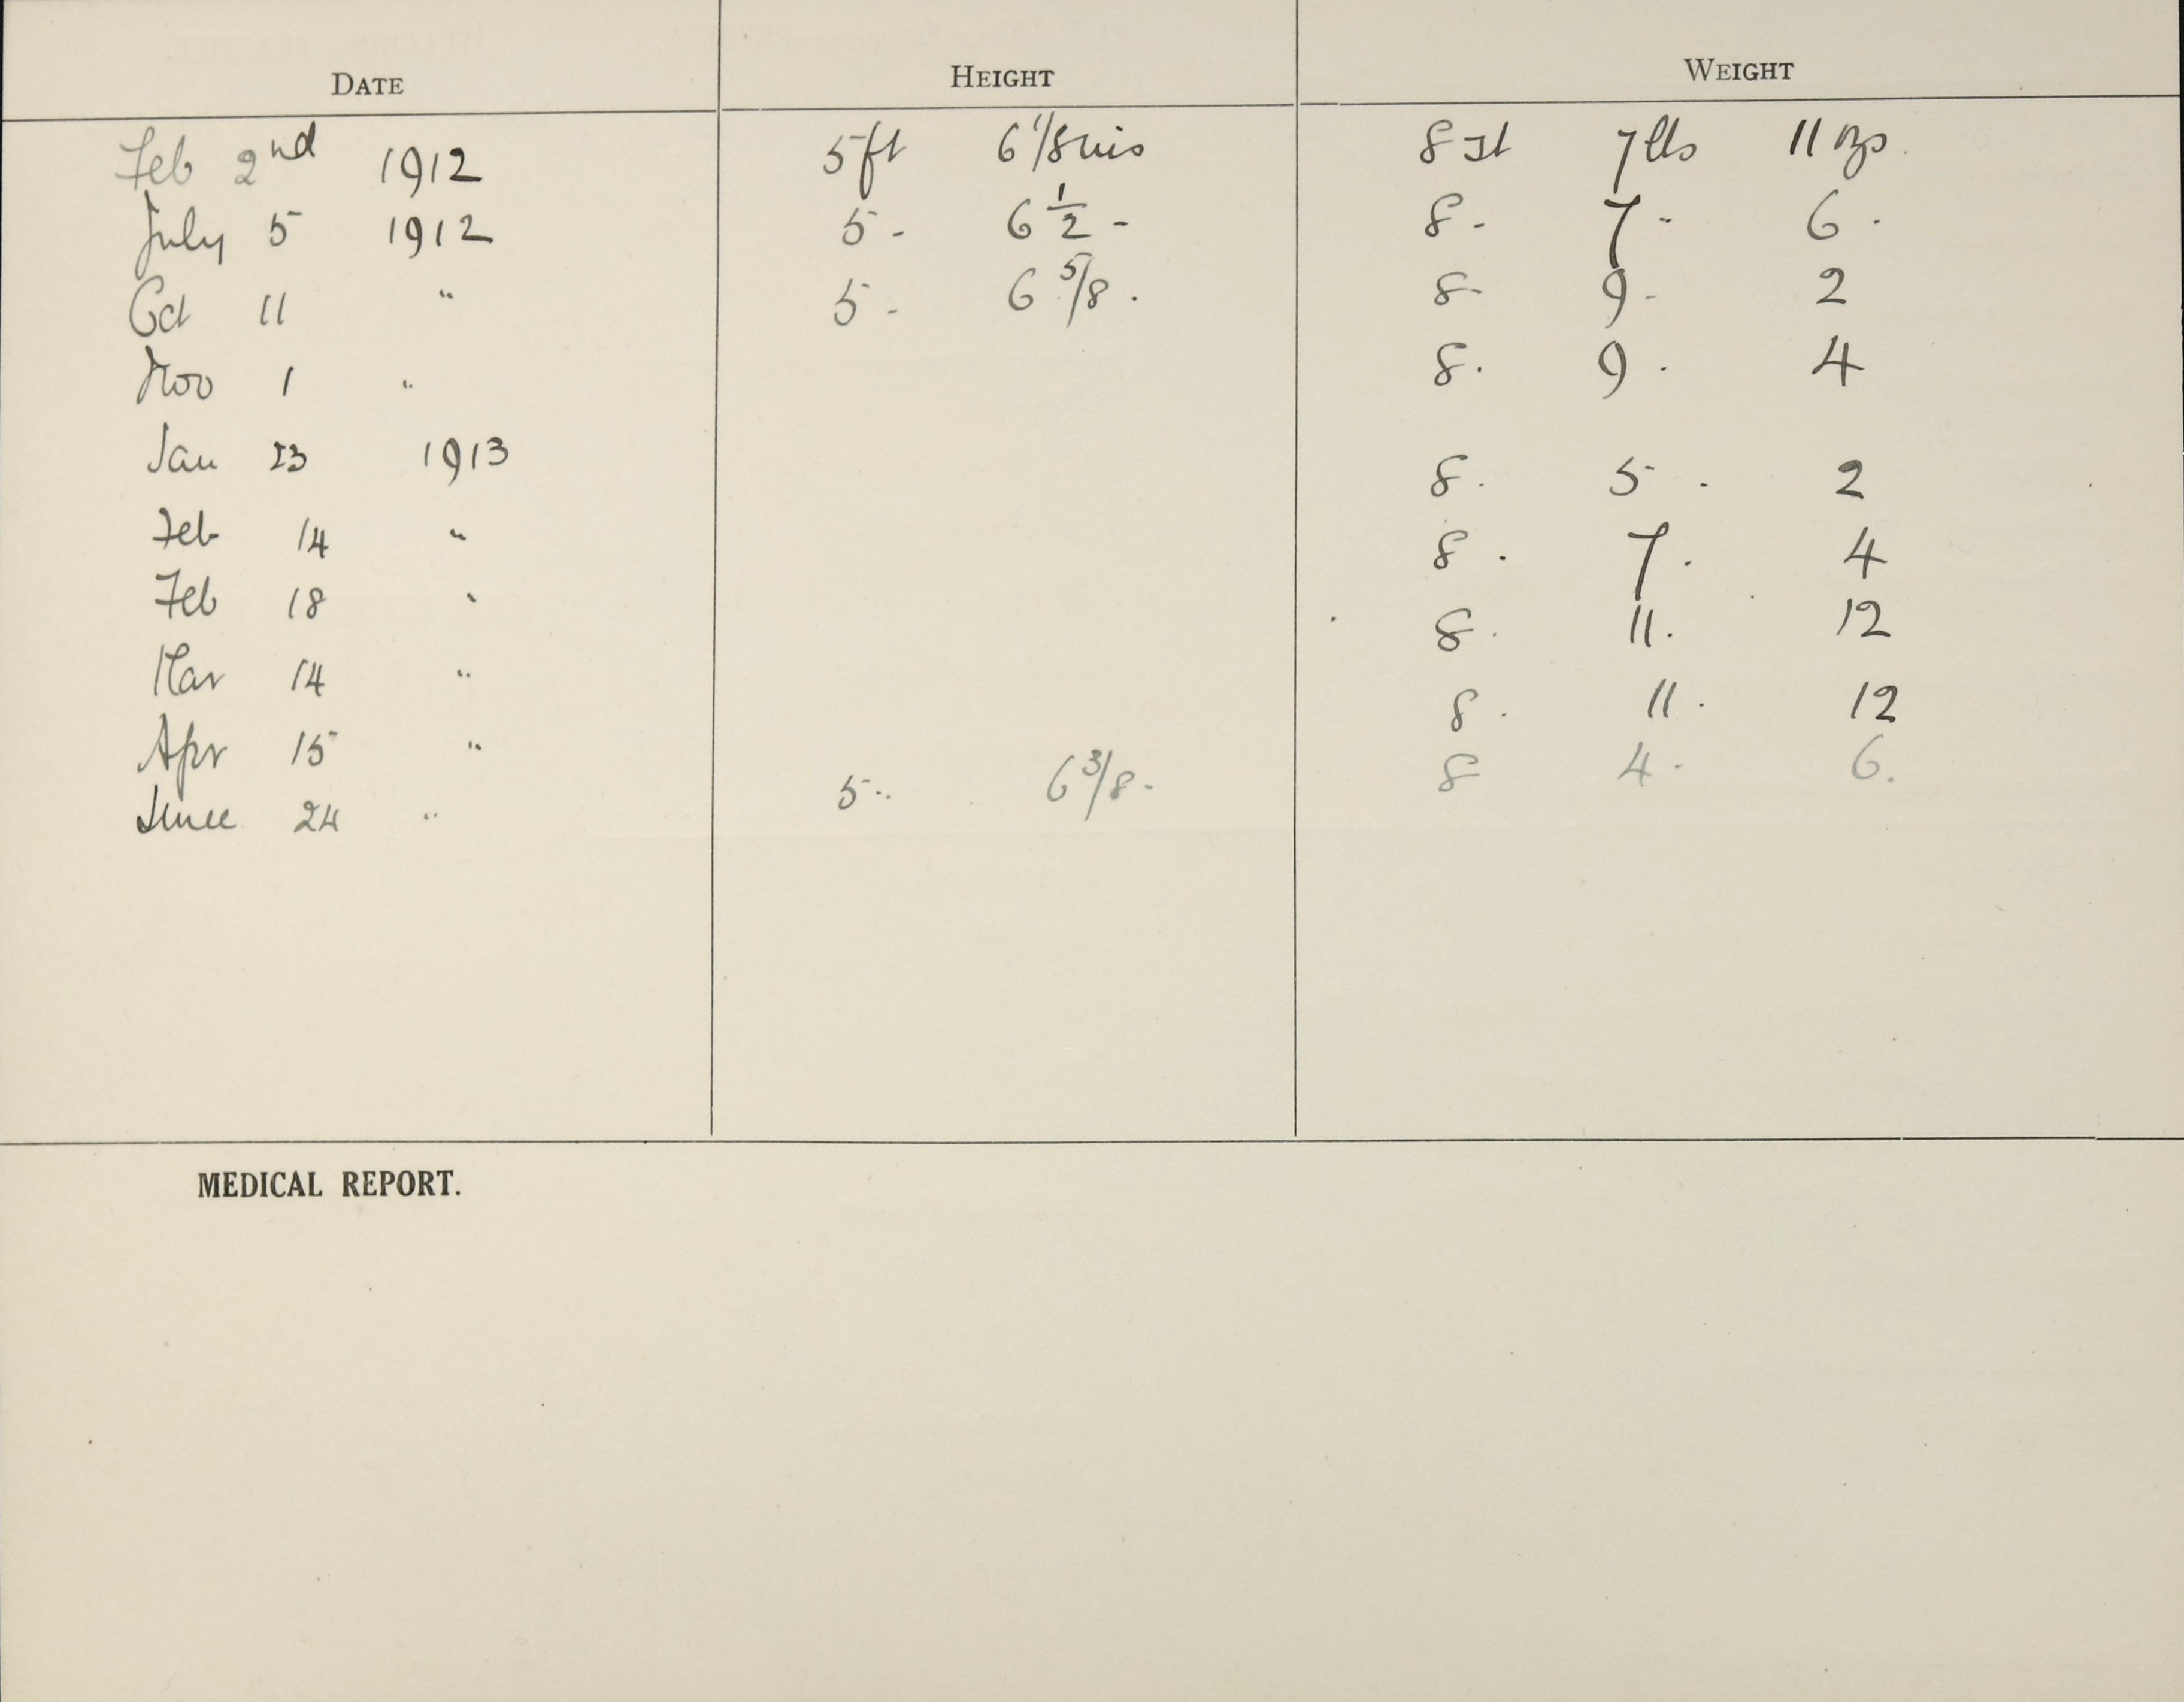 DATE HEIGHT WEIGHT
Feb 2nd 1912 5ft 6 1/8 ins 8 st 7 lbs 11 ozs.
July 5 1912 5 - 6 1/2 - 8 - 7 - 6 .
Oct 11 " 5 - 6 5/8 . 8 - 9 - 2
Nov 1 " 8 . 9 . 4
Jan 23 1913
Feb 14 " 8 . 5 . 2
Feb 18 " 8 . 7 . 4
Mar 14 " 8 . 11 . 12
Apr 15 " 8 . 11 . 12
June 24 " 5 - 6 3/8 - 8 4 - 6 .
MEDICAL REPORT.